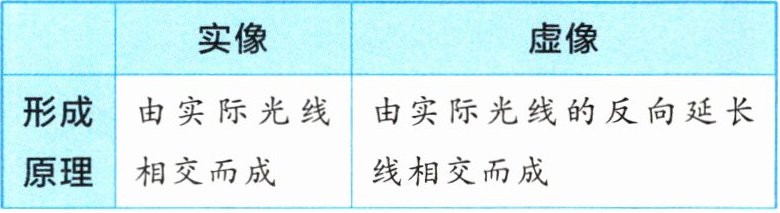 实像 虚像
形成原理 由实际光线相交而成 由实际光线的反向延长线相交而成